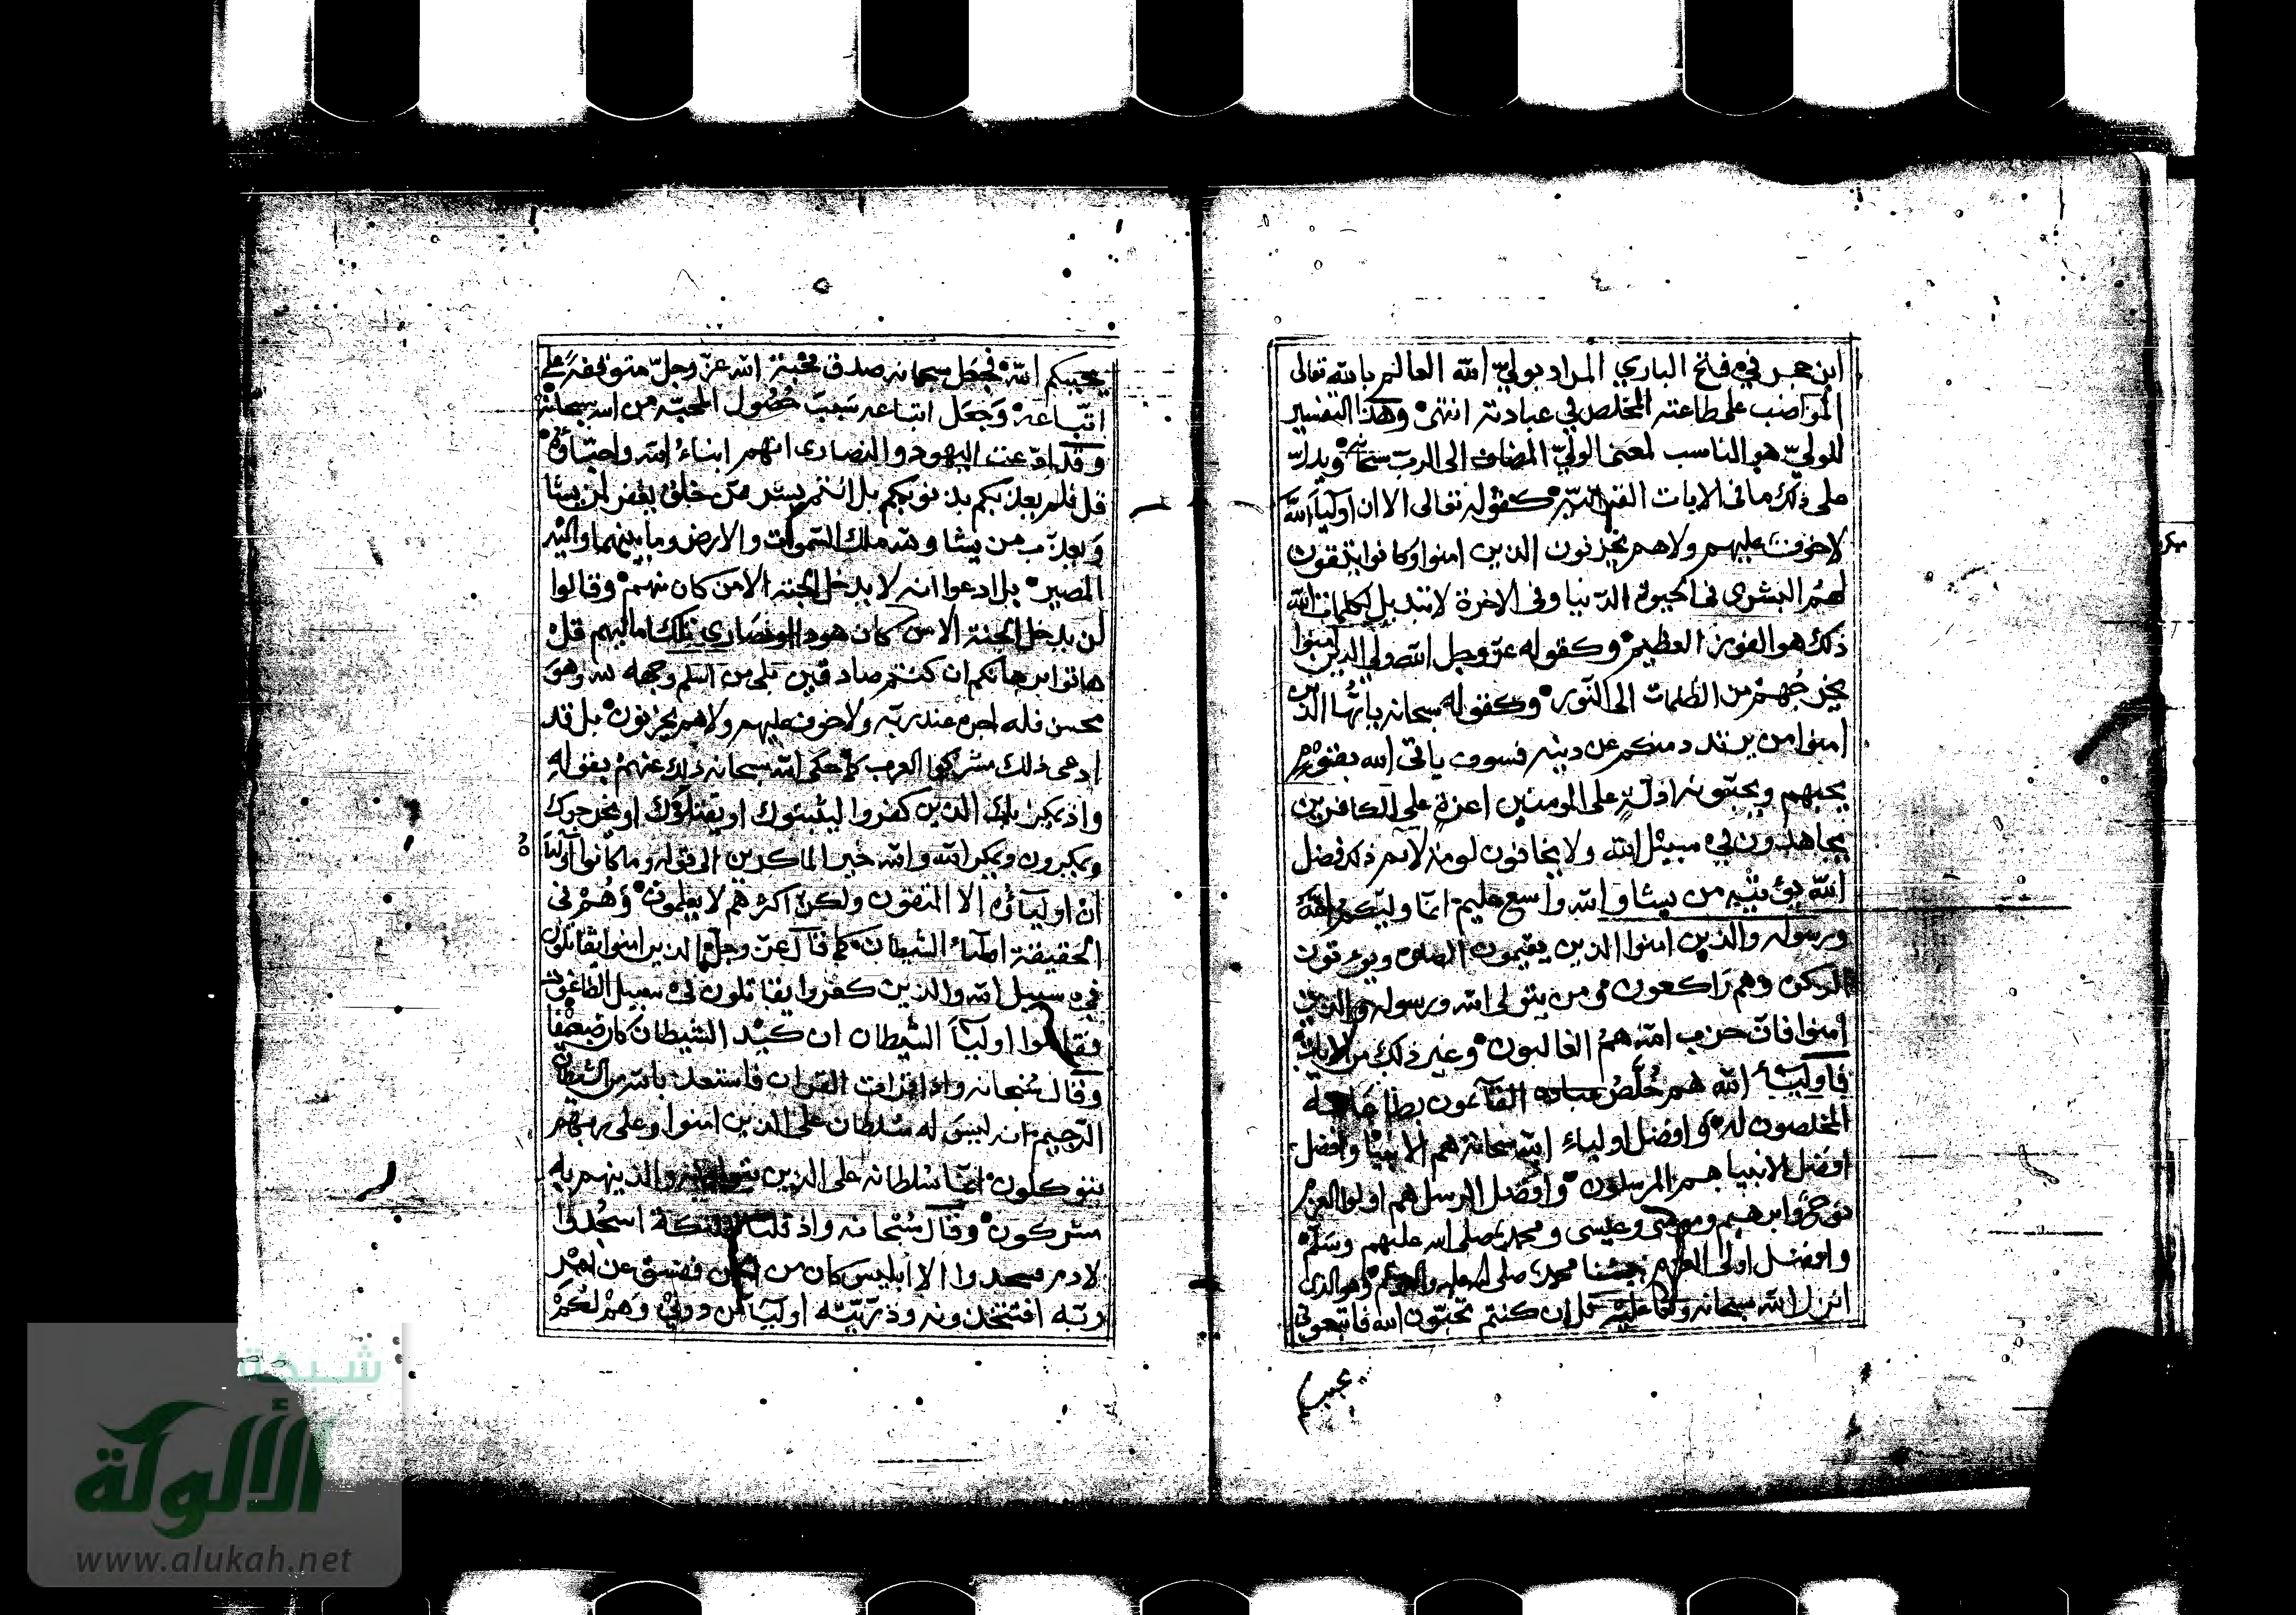 ابن حجر في فتح الباري المراد بوليّ الله العالم بالله تعالى
المواضب على طاعته المخلص في عبادته انتهى وهذا التفسير
للوليّ هو المناسب لمعنى الوليّ المضاف الى الربّ سبحانه ويدلّ
على ذلك ما في الايات القرآنيّة كقوله تعالى الا ان اوليآء الله
لا خوف عليهم ولا هم يحزنون الذين امنوا وكانوا يتقون
لهم البشرى في الحيوة الدنيا وفي الاخرة لا تبديل لكلمات الله
ذلك هو الفوز العظيم وكقوله عزّ وجل الله ولي الذين امنوا
يخرجهم من الظلمات الى النّور وكقوله سبحانه يا ايّها الذين
امنوا من يرتدد منكم عن دينه فسوف ياتى الله بقوم
يحبهم ويحبّونه اذلّةٍ على المومنين اعزةٍ على الكافرين
يجاهدون في سبيل الله ولا يخافون لومة لآئم ذلك فضل
الله يؤتيه من يشا والله واسع عليم انما وليّكم الله
ورسوله والذين امنوا الذين يقيمون الصلوة ويؤتون
الزكوة وهم راكعون ومن يتولى الله ورسوله والذين
أمنوا فانّ حزب الله همُ الغالبون وغير ذلك من الايات
فاوليآء الله هم خُلّصُ عباده القآئمون بطاعاته
المخلصون له وافضل اولياء الله سبحانه هم الانبيا وافضل
افضل الانبيا هم المرسلون وافضل الرسل هم اولوا العزم
نوح وابرهيم وموسى وعيسى ومحمد صلى الله عليهم وسلم
وافضل اولى العزم نبيّنا محمد صلى الله عليه وسلم وهو الذي
انزل الله سبحانه وتعالى عليه قل ان كنتم تحبّون الله فاتبعوني
يحببكم
يحببكم الله فجعل سبحانه صدق محبّة الله عزّ وجلّ متوقفة على
اتّباعه وجَعَل اتباعه سَببَ حُصُول المحبّة من الله سبحانه
وقد ادّعت اليهود والنصارى انهم ابناءُ الله واحبّاؤه
قل فلم يعذبكم بذنوبكم بل انتم بشر ممّن خلق يغفر لمن يشا
وَيعذّب من يشا ولله ملك السّموات والارض وما بينهما واليه
المصير بل ادعوا انه لا يدخل الجنة الا من كان منهم وقالوا
لن يدخل الجنة الا من كان هودا او نصارى تلك امانيهم قل
هاتوا برهانكم ان كنتم صادقين بلى من اسلم وجهه لله وهو
محسن فله اجره عند ربّه ولا خوف عليهم ولا هم يحزنون بل قد
ادعى ذلك مشركوا العرب كما حكى الله سبحانه ذلك عنهم بقوله
واذ يمكر بك الذين كفروا ليثبتوك او يقتلوك او يخرجوك
ويمكرون ويمكر الله والله خير الماكرين الى قوله وما كانوا اوليآءه
ان اوليآئه الا المتقون ولكنّ اكثرهم لا يعلمون وهُم في
الحقيقة اوليآء الشيطان كما قال عزّ وجلّ الذين امنوا يقاتلون
في سبيل الله والذين كفروا يقاتلون في سبيل الطّاغوت
فقاتلوا اوليآ الشّيطان ان كيْد الشيطان كان ضعيفا
وقال سُبحانه واذا قرات القران فاستعذ بالله من الشيطان
الرّجيم انه ليس له سلطان على الذين امنوا وعلى ربهم
يتوكلون انمّا سلطانه على الذين يتولونه والذين هم به
مشركون وقال سُبحانه واذ قلنا للملئكة اسجُدوا
لادم فسجدوا الا ابليس كان من الجن ففسق عن امر
ربّه افتتّخذونه وذرّيّته اوليآ من دوني وهم لكم